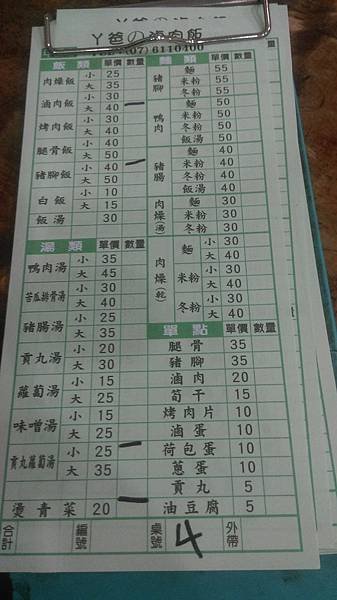 ㄚ爸の滷肉飯
(07) 6110400
飯類 單價 數量
肉燥飯 小 25
大 35
滷肉飯 小 30
大 40 一
烤肉飯 小 30
大 40
腿骨飯 小 40
大 50 一
豬腳飯 小 40
大 50
白飯 小 10
大 15
飯湯 30
湯類 單價 數量
鴨肉湯 小 35
大 45
苦瓜排骨湯 小 30
大 40
豬腸湯 小 25
大 35
貢丸湯 小 20
大 30
蘿蔔湯 小 15
大 25
味噌湯 小 15
大 25
貢丸蘿蔔湯 小 25 一
大 35
燙青菜 20 一
麵類 單價 數量
豬腳 麵 55
米粉 55
冬粉 55
鴨肉 麵 50
米粉 50
冬粉 50
飯湯 50
豬腸 麵 40
米粉 40
冬粉 40
飯湯 40
肉燥(湯) 麵 30
米粉 30
冬粉 30
肉燥(乾) 麵 小 30
大 40
米粉 小 30
大 40
冬粉 小 30
大 40
單點 單價 數量
腿骨 35
豬腳 35
滷肉 20
筍干 15
烤肉片 10
滷蛋 10
荷包蛋 10
蔥蛋 10
貢丸 5
油豆腐 5
合計 編號 桌號 4 外帶